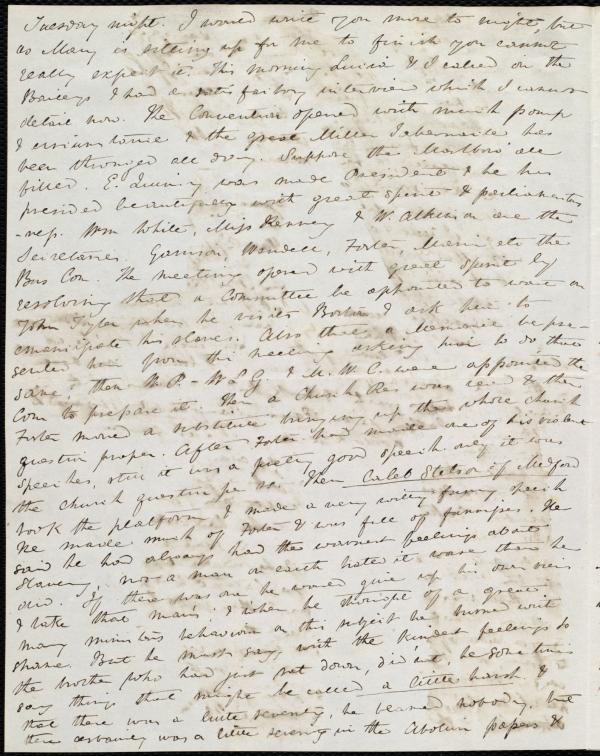 Tuesday night. I would write you more to night, but
as Mary is sitting up for me to finish you cannot
really expect it. This morning Louisa & I called on the
Baileys & had a satisfactory interview which I cannot
detail now. The Convention opened with much pomp
& circumstance & the great Miller Tabernacle has
been thronged all day. Suppose the Marlboro' all
filled. E. Quincy was made President & he has
presided beautifully with great spirit & parliamentari
-ness. Wm White, Miss Kenney & W. Atkinson are the
Secretaries. Garrison, Wendell, Foster, &c the
Bus Com. The meeting opened with great spirit by
resolving that a Committee be appointed to wait on
John Tyler when he visits Boston & ask him to
emancipate his slaves. Also that a Memorial be pre-
sented him from this meeting asking him to do the
same, then W.P. - W.L.G. & M.W.C. were appointed the
Com to prepare it. Then a Church Res was read & then
Foster moved a substitute bringing up the whole church
question proper. After Foster had made one of his violent
speeches, still it was a pretty good speech only it was
the church question per se. Then Caleb Stetson of Medford
took the platform, & made a very witty funny speech
He made much of Foster & was full of funniness. He
said he had always had the warmest feelings about
slavery, not a man on earth hated it worse than he
did. If there was one he would give up his own
& take that man's; & when he thought of a great
many ministers behaviour on this subject he burned with
shame. But he must say, with the kindest feelings to
the brother who had just sat down, did'nt he sometimes
say things that might be called a little harsh, &
that there was a little severity, he blamed nobody, but
there certainly was a little severity in the Abolition papers &